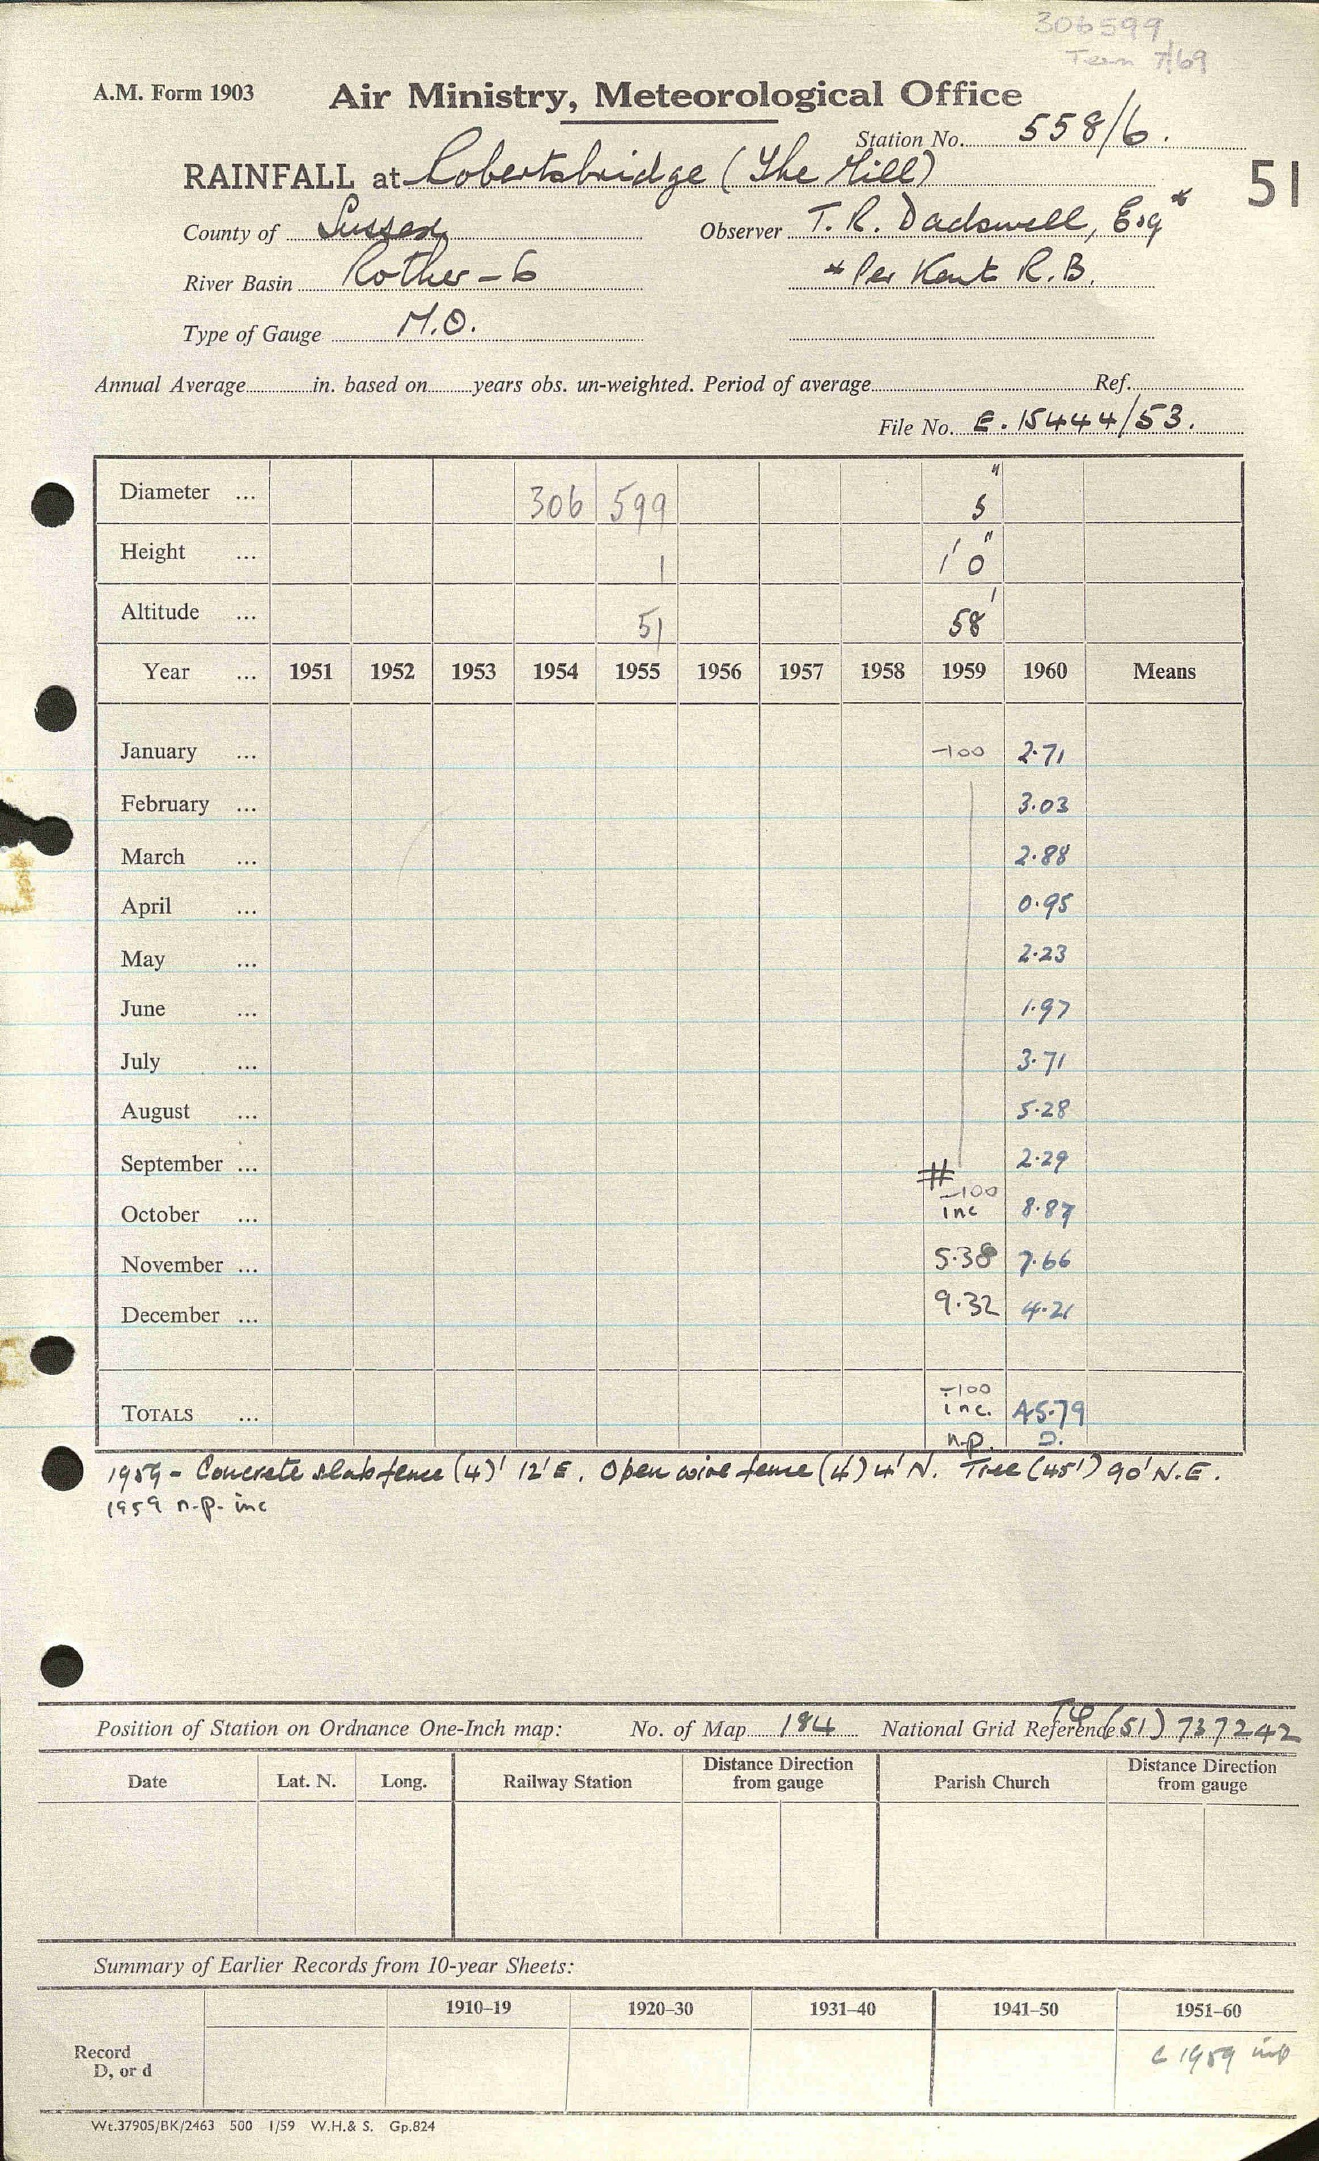 306599
Term 7/69
A.M. Form 1903 Air Ministry, Meteorological Office
Station No. 558/6.
RAINFALL at Robertsbridge (The Mill) 51
County of Sussex Observer T. R. Dadswell, Esq *
River Basin Rother - 6 * Per Kent R.B.
Type of Gauge M.O.
Annual Average in. based on years obs. un-weighted. Period of average Ref.
File No. E. 15444/53.
Diameter ... 306 599 5"
Height ... 1 1' 0"
Altitude ... 51 58'
Year ... 1951 1952 1953 1954 1955 1956 1957 1958 1959 1960 Means
January ... -100 2.71
February ... 3.03
March ... 2.88
April ... 0.95
May ... 2.23
June ... 1.97
July ... 3.71
August ... 5.28
September ... 2.29
#
-100
October ... inc 8.87
November ... 5.38 7.66
December ... 9.32 4.21
-100
TOTALS ... inc. 45.79
n.p. D.
1959 - Concrete slab fence (4)' 12' E. Open wire fence (4') 4' N. Tree (45') 90' N.E.
1959 n.p. inc
Position of Station on Ordnance One-Inch map: No. of Map 184 National Grid Reference TQ (51) 737242
Date Lat. N. Long. Railway Station Distance Direction from gauge Parish Church Distance Direction from gauge
Summary of Earlier Records from 10-year Sheets:
1910–19 1920–30 1931–40 1941–50 1951–60
Record
D, or d 1959 inp
Wt.37905/BK/2463 500 1/59 W.H.& S. Gp.824